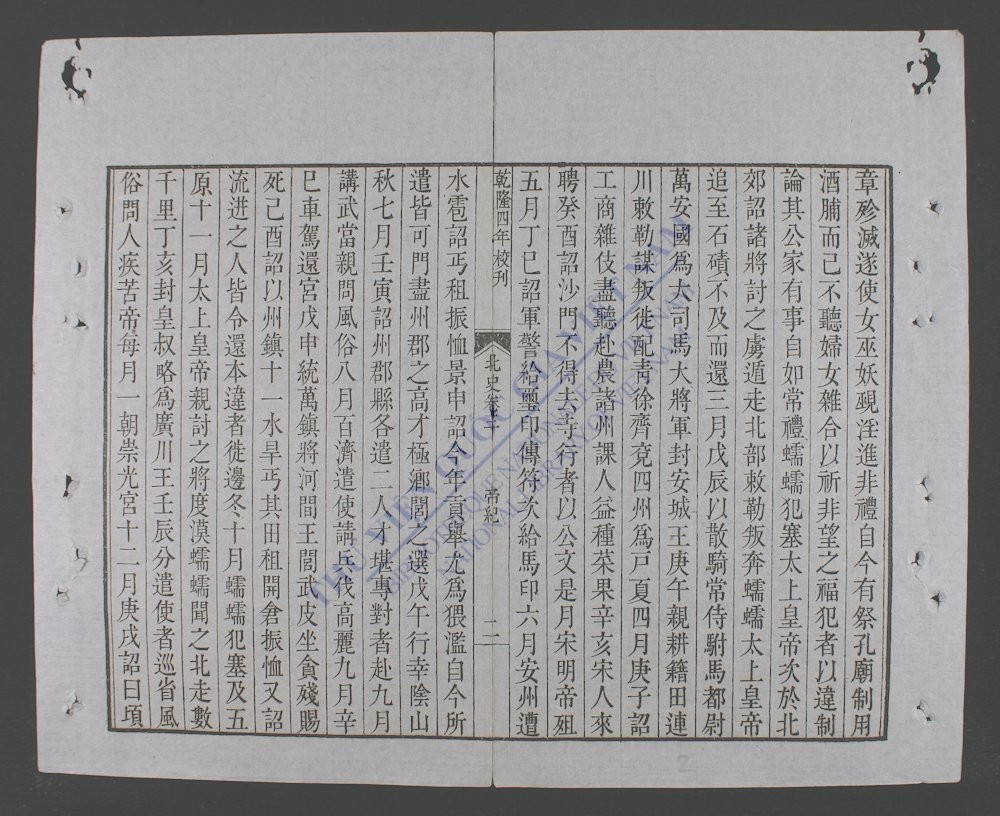 章殄滅遂使女巫妖覡淫進非禮自今有祭孔廟制用
酒脯而已不聽婦女雜合以祈非望之福犯者以違制
論其公家有事自如常禮蠕蠕犯塞太上皇帝次於北
郊詔諸將討之虜遁走北部敕勒叛奔蠕蠕太上皇帝
追至石磧不及而還三月戊辰以散騎常侍駙馬都尉
萬安國爲大司馬大將軍封安城王庚午親耕籍田連
川敕勒謀叛徙配青徐齊兗四州爲戸夏四月庚子詔
工商雜伎盡聽赴農諸州課人益種菜果辛亥宋人來
聘癸酉詔沙門不得去寺行者以公文是月宋明帝殂
五月丁巳詔軍警給璽印傳符次給馬印六月安州遭
乾隆四年校刊
北史卷三
帝紀
二
水雹詔丐租振恤景申詔今年貢舉尤爲猥濫自今所
遣皆可門盡州郡之高才極鄉閭之選戊午行幸陰山
秋七月壬寅詔州郡縣各遣二人才堪專對者赴九月
講武當親問風俗八月百濟遣使請兵伐高麗九月辛
巳車駕還宮戊申統萬鎮將河間王閭武皮坐貪殘賜
死己酉詔以州鎮十一水旱丐其田租開倉振恤又詔
流迸之人皆令還本違者徙邊冬十月蠕蠕犯塞及五
原十一月太上皇帝親討之將度漠蠕蠕聞之北走數
千里丁亥封皇叔略爲廣川王壬辰分遣使者巡省風
俗問人疾苦帝每月一朝崇光宮十二月庚戌詔曰頃
THU VIEN QUOC GIA VIET NAM
BIBLIOTHEQUE NATIONALE DU VIETNAM
NATIONAL LIBRARY OF VIETNAM
2